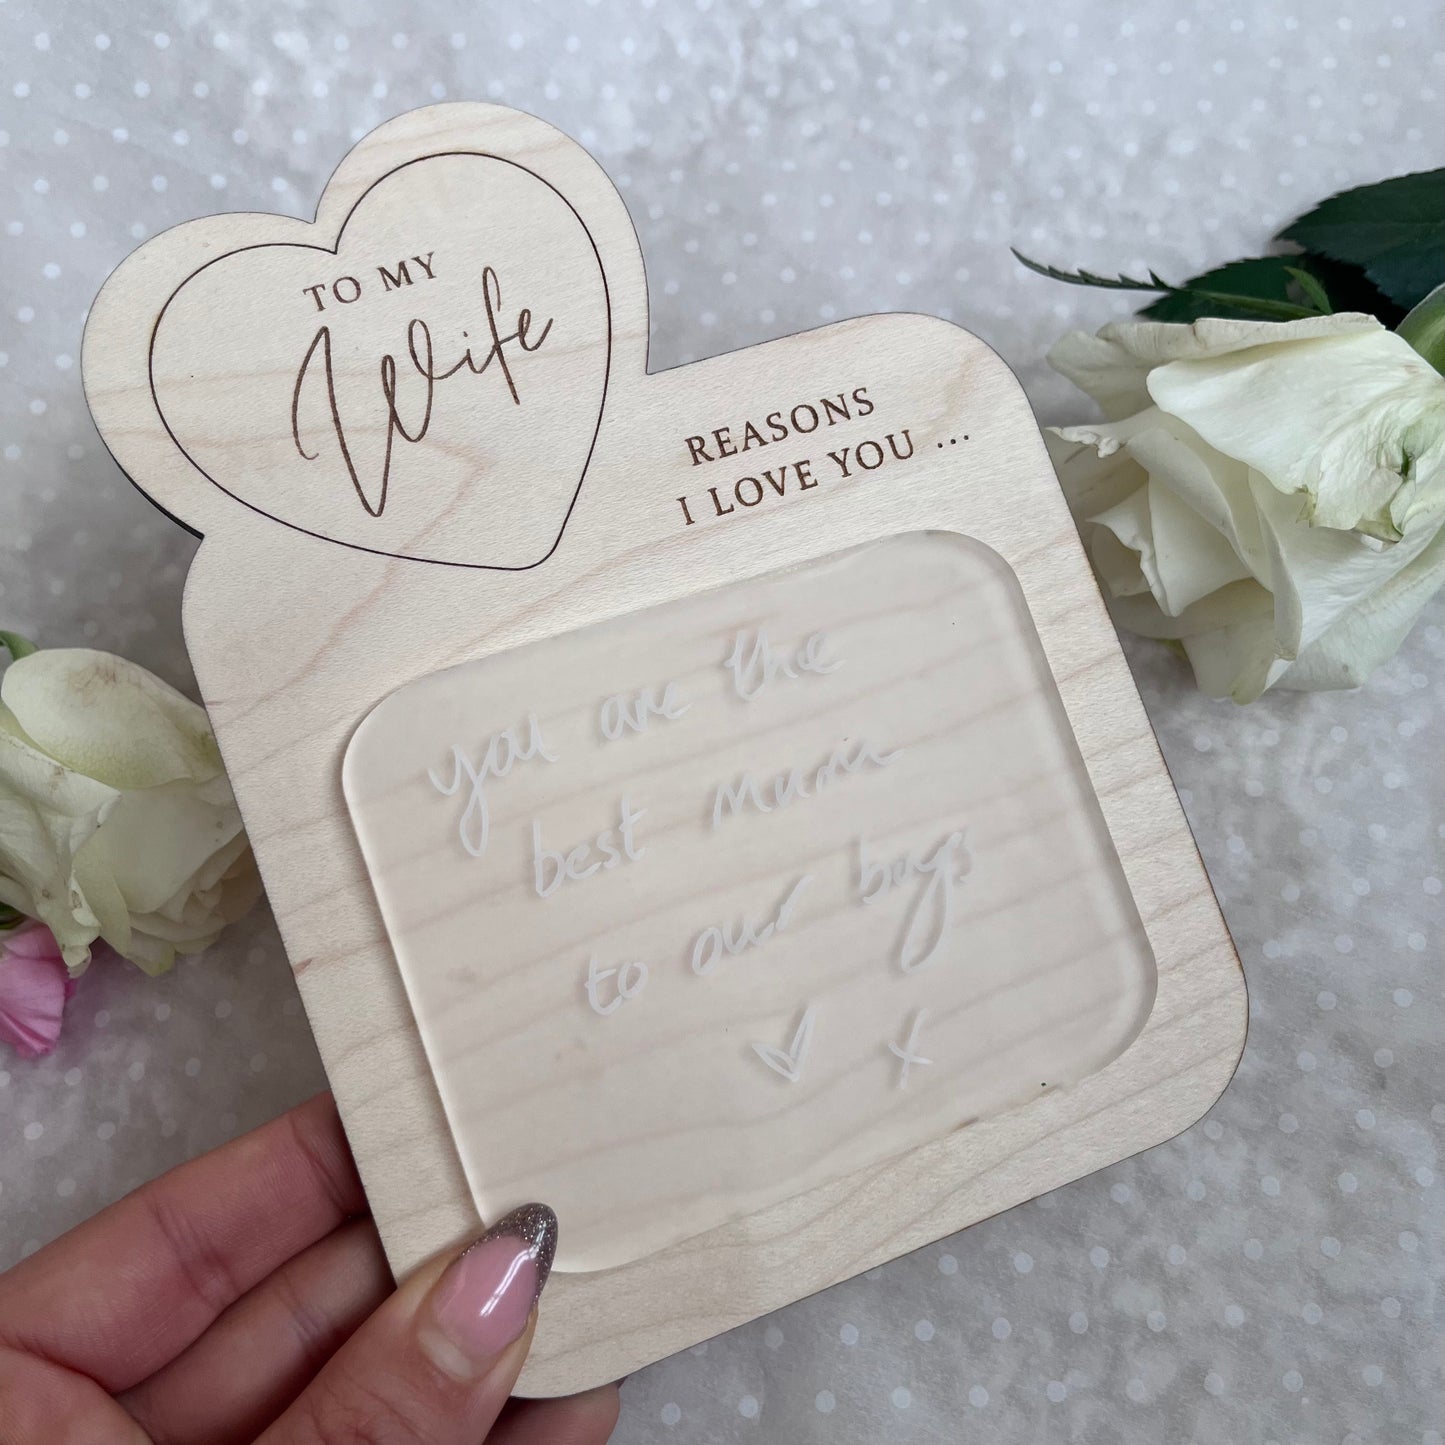 TO MY
Wife
REASONS
I LOVE YOU ...
you are the
best Mum
to our boys
♡ x